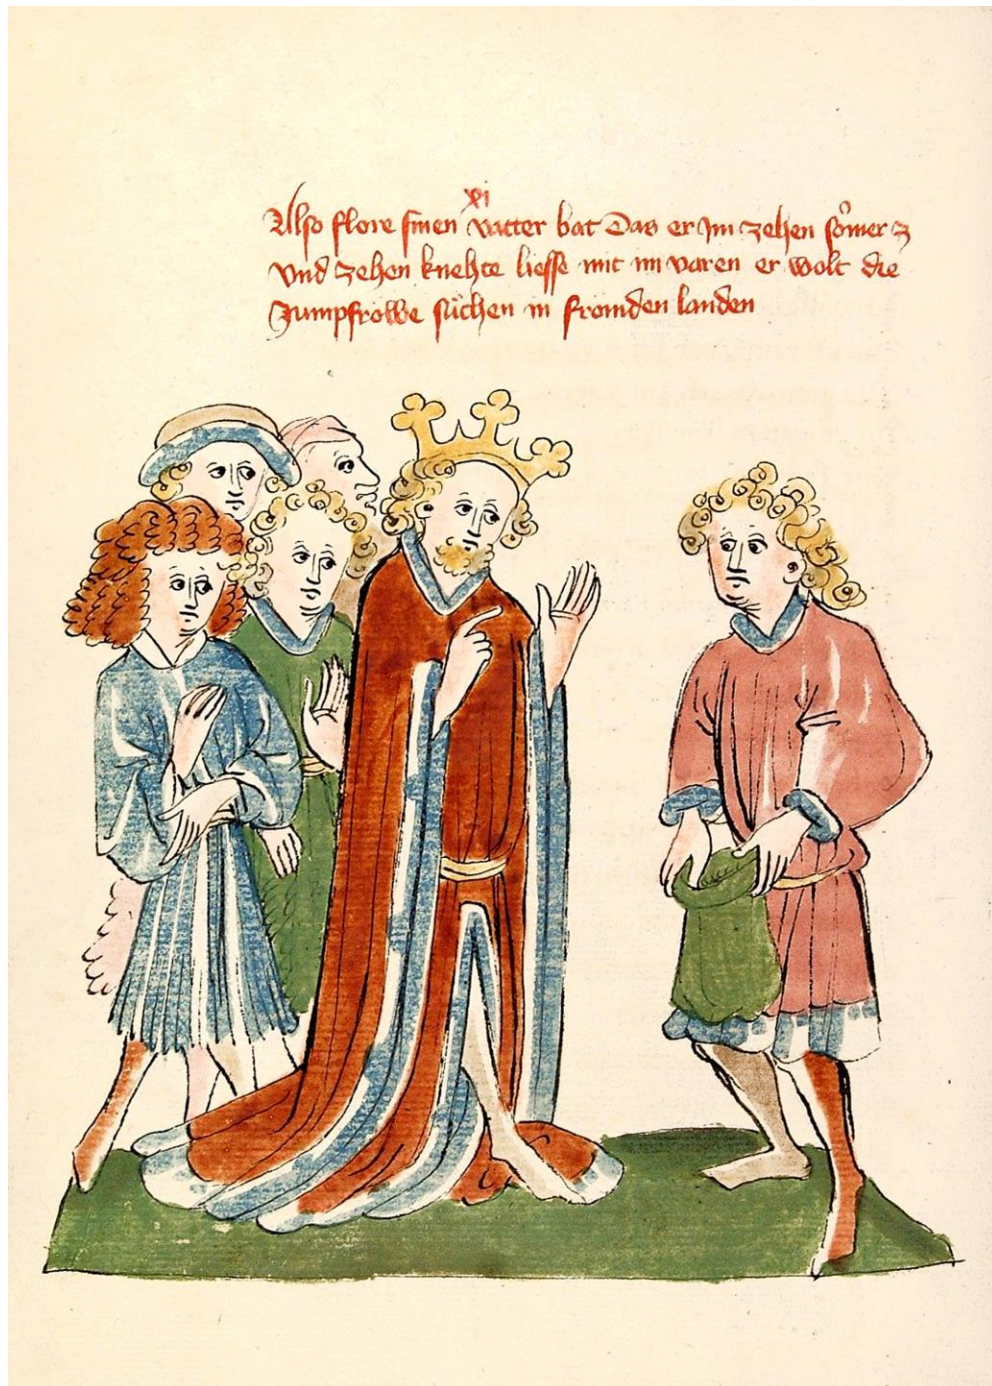 xi
Also flore sinen vatter bat Das er Im zehen soͤmer z
vnd zehen knehte liesse mit im varen er wolt die
Jumpfroͮwe suͦchen in froͤmden landen